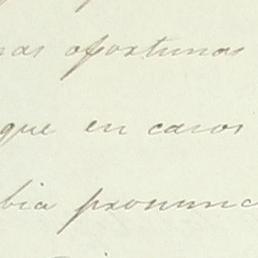 nas oportunas
que en casos
bia pronunc